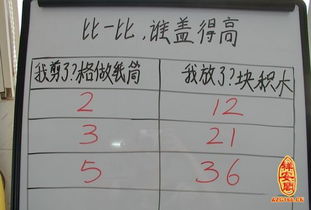 比一比，谁盖得高
我剪了?格做纸筒 我放了?块积木
2 12
3 21
5 36
祥安阁